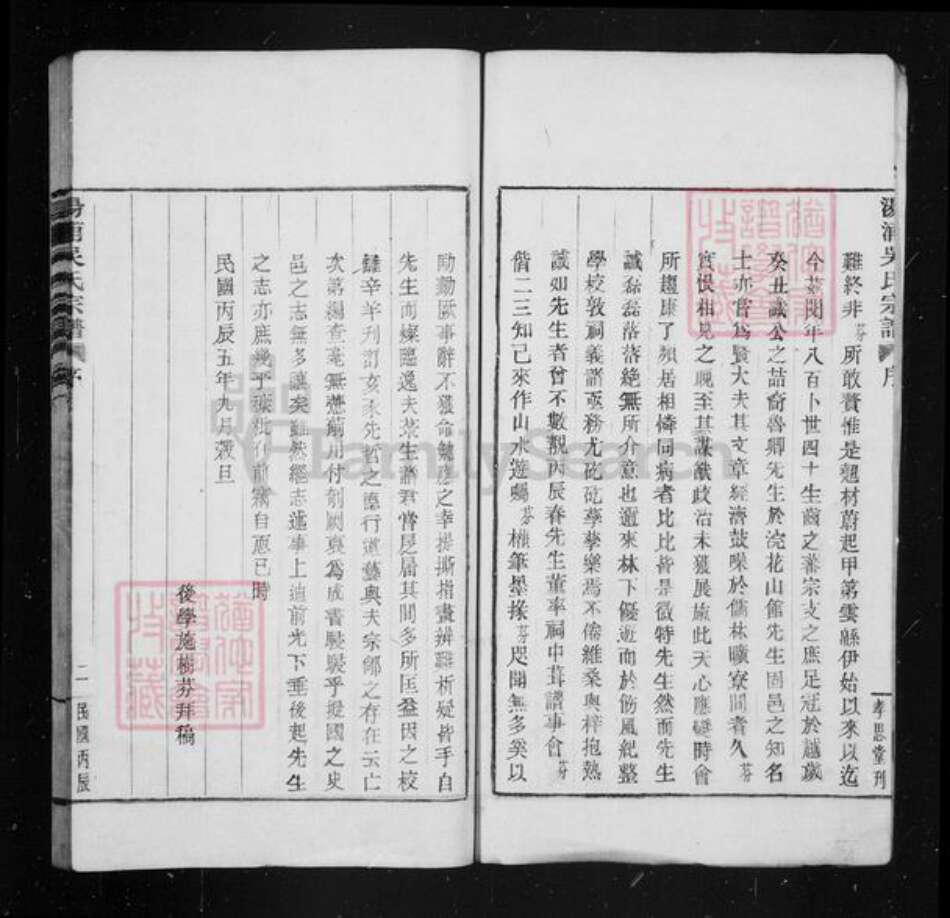 湯浦吳氏宗譜 序
孝思堂刊
難終非芬所敢贊惟是翹材蔚起甲第雲緜伊始以來以迄
今茲閱年八百卜世四十生齒之蕃宗支之庶足冠於越歲
癸丑識公之喆裔魯卿先生於浣花山館先生固邑之知名
士亦當爲賢大夫其文章經濟鼓噪於儒林曠寮間者久芬
實恨相見之晚至其謀猷政治未獲展旅此天心應礙時會
所趨康了頻居相憐同病者比比皆是微特先生然而先生
誠磊磊落落絕無所介意也邇來林下優游而於飭風紀整
學校敦祠義諸亟務尤矻矻孳孳樂焉不倦維桑與梓抱熱
誠如先生者曾不數覯丙辰春先生董率祠中葺譜事會芬
偕二三知己來作山水遊囑芬橅筆墨掾芬咫聞無多奚以
助勷厥事辭不獲命勉應之幸提撕指畫辨難析疑皆手自
先生而燦臨逸夫棠生諸君嘗居層其間多所匡益因之校
讎辛羊刊訂亥豕先哲之德行道藝與夫宗鄉之存在云亡
次第編查毫無愆萠用付剞劂裒爲成書駸駸乎擬國之史
邑之志無多讓矣雖然繼志述事上追前光下垂後起先生
之志亦庶幾乎
自恧已時
民國丙辰五年九月穀旦
後學施樹芬拜稿
湯浦吳氏宗譜 序
二 民國丙辰
FamilySearch